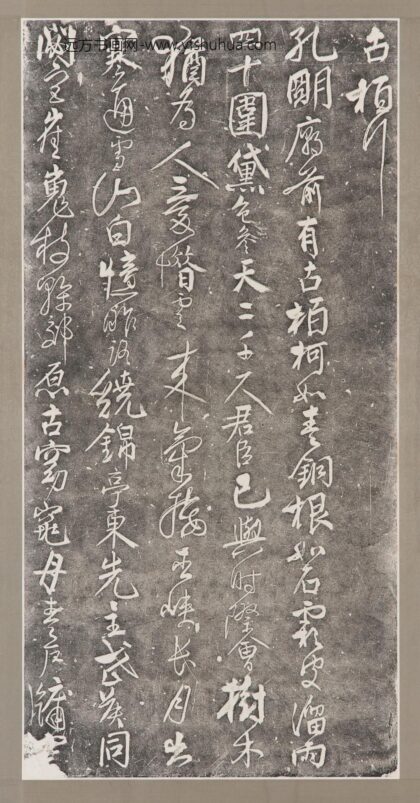 远方书画网-www.yishuhua.com
古栢行
孔朙廟前有古栢柯如青銅根如石霜皮溜雨
四十圍黛色參天二千尺君臣已與時際會樹木
猶為人愛惜雲來氣接巫峽長月出
寒通雪山白憶昨路繞錦亭東先主武侯同
閟宮崔嵬枝幹郊原古窈窕丹青戶牖空